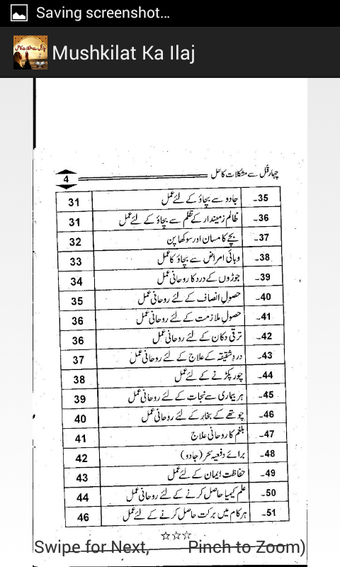 Saving screenshot...
Mushkilat Ka Ilaj
چہار قُل سے مشکلات کا حل
4
35۔ جادو سے بچاؤ کے لئے عمل 31
36۔ ظالم زمیندار کے ظلم سے بچاؤ کے لئے عمل 31
37۔ بچے کا مسان اور سوکھا پن 32
38۔ وبائی امراض سے بچاؤ کا عمل 33
39۔ جوڑوں کے درد کا روحانی عمل 34
40۔ حصول انصاف کے لئے روحانی عمل 35
41۔ حصول ملازمت کے لئے روحانی عمل 36
42۔ ترقی دکان کے لئے روحانی عمل 36
43۔ درد شقیقہ کے علاج کے لئے روحانی عمل 37
44۔ چور پکڑنے کے لئے عمل 38
45۔ ہر بیماری سے نجات کے لئے روحانی عمل 39
46۔ چوتھے کے بخار کے لئے روحانی عمل 40
47۔ بلغم کا روحانی علاج 41
48۔ برائے دفعیہ سحر (جادو) 42
49۔ حفاظت ایمان کے لئے عمل 43
50۔ علم کیمیا حاصل کرنے کے لئے روحانی عمل 44
51۔ ہر کام میں برکت حاصل کرنے کے لئے عمل 46
☆☆☆
Swipe for Next, Pinch to Zoom)